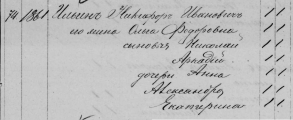 74 1861 Ильинъ Никифоръ Ивановичъ 1 1
его жена Елена Федоровна 1 1
сыновья Николай 1 1
Аркадій 1 1
дочери Анна 1 1
Александра 1 1
Екатерина 1 1